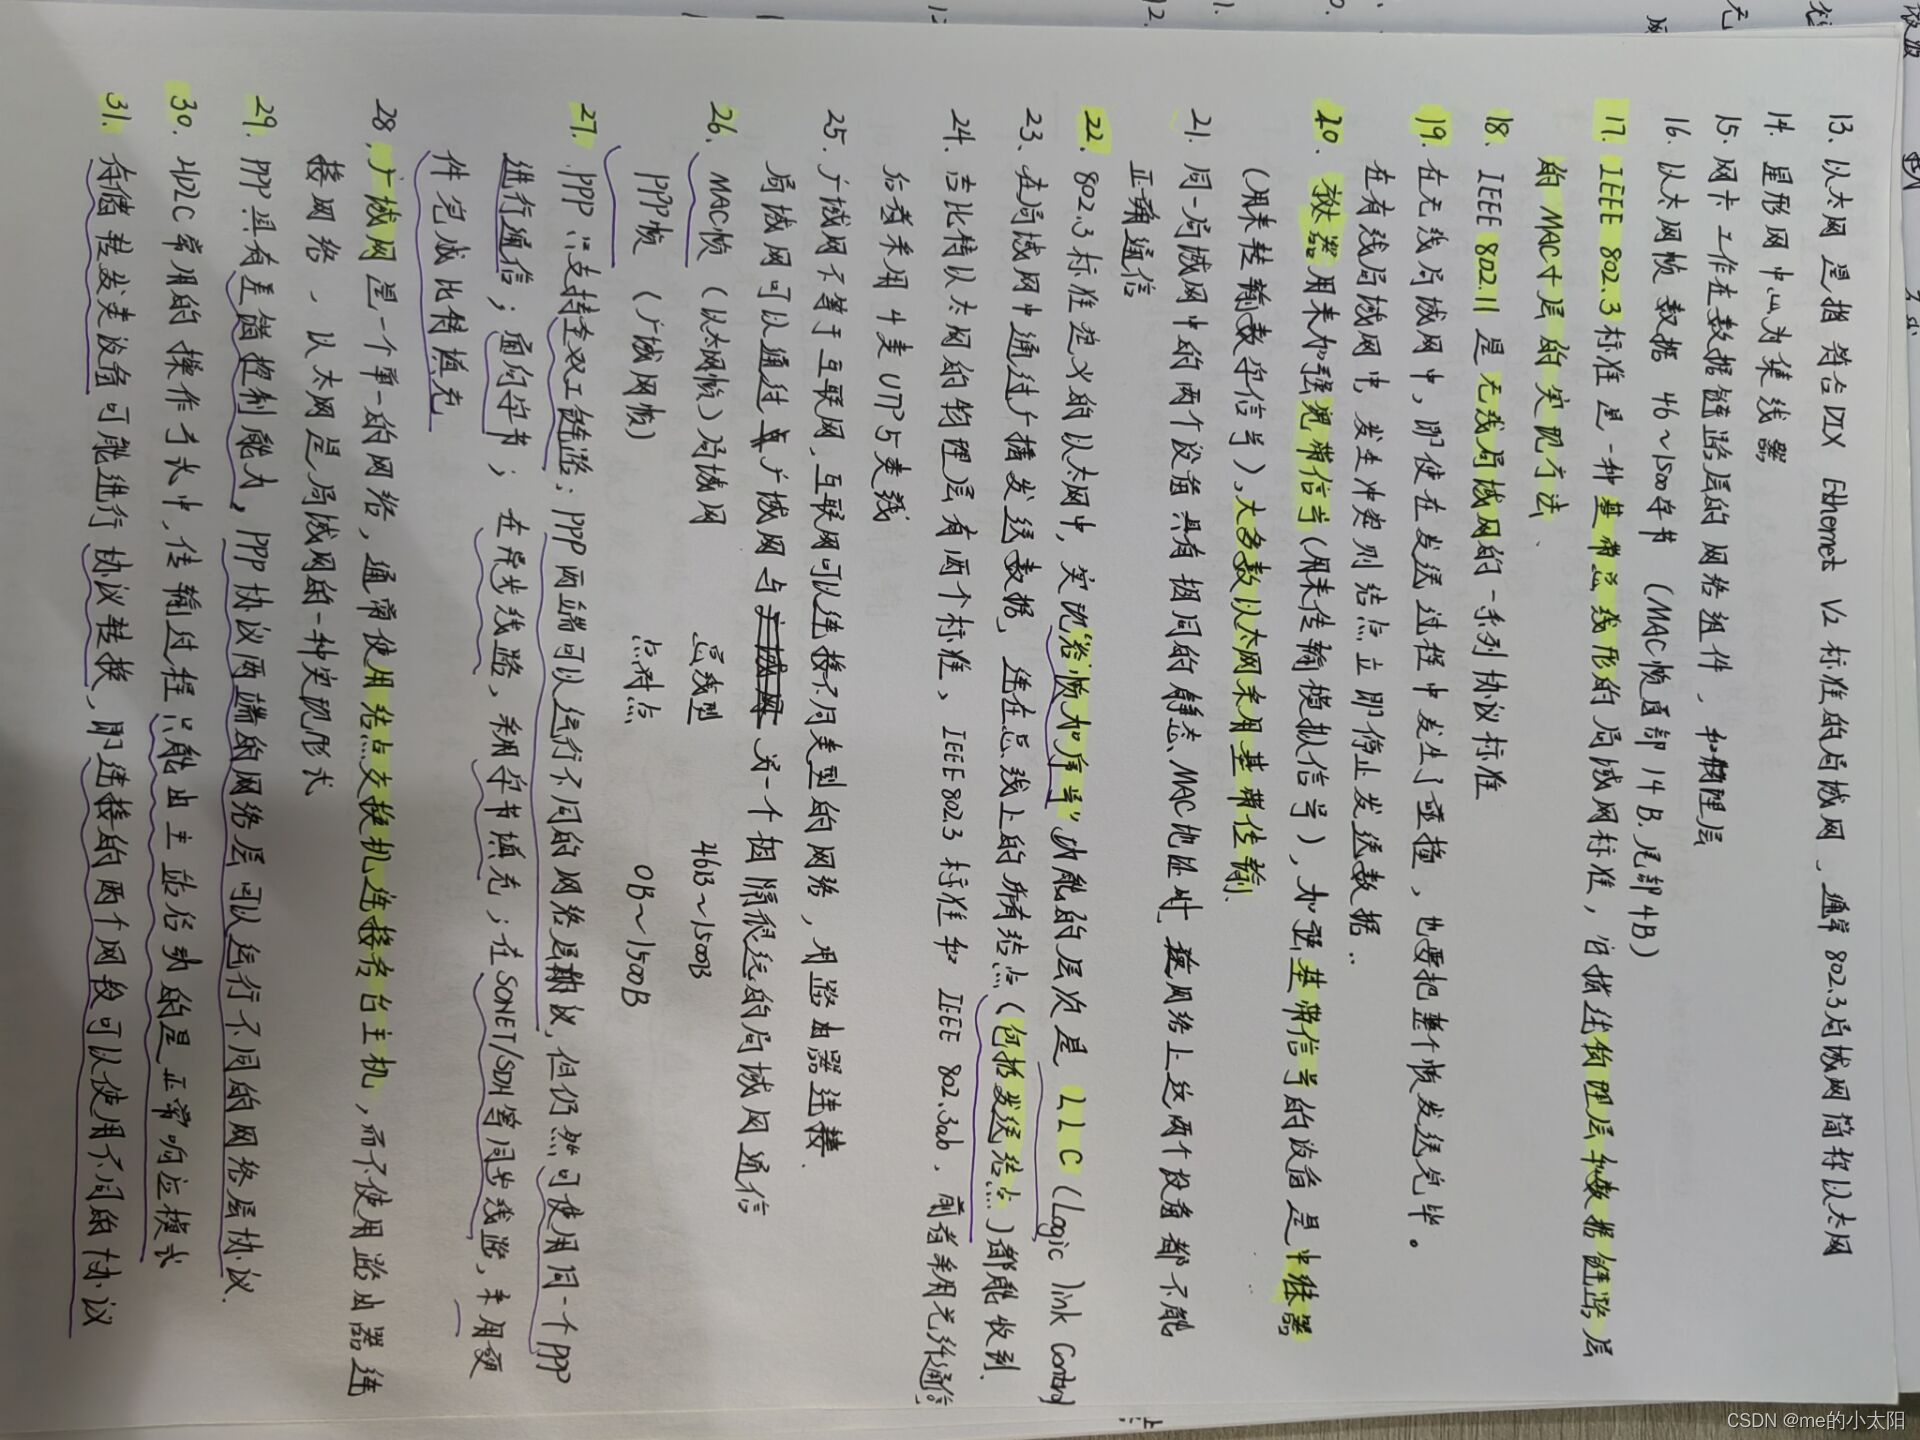 13. 以太网是指符合DIX Ethernet V2标准的局域网，通常802.3局域网简称以太网
14. 星形网中心为集线器
15. 网卡工作在数据链路层的网络组件，和物理层
16. 以太网帧 数据 46~1500字节 (MAC帧首部14B.尾部4B)
17. IEEE 802.3标准是一种基带总线形的局域网标准，它描述物理层和数据链路层
的MAC子层的实现方法.
18. IEEE 802.11 是无线局域网的一系列协议标准
19. 在无线局域网中，即使在发送过程中发生了碰撞，也要把整个帧发送完毕。
在有线局域网中，发生冲突则结点立即停止发送数据..
20. 放大器用来加强宽带信号(用来传输模拟信号)，加强基带信号的设备是中继器
(用来传输数字信号)，大多数以太网采用基带传输.
21. 同一局域网中的两个设备具有相同的静态MAC地址时,该网络上这两个设备都不能
正确通信
22. 802.3标准定义的以太网中，实现"给帧加序号"功能的层次是LLC (Logic link Control)
23、在局域网中通过广播发送数据，连在总线上的所有结点(包括发送结点...)都能收到.
24. 吉比特以太网的物理层有两个标准、IEEE802.3标准和IEEE 802.3ab，前者采用光纤通信,
后者采用4麦UTP5类线
25. 广域网不等于互联网，互联网可以连接不同类型的网络，用路由器连接.
局域网可以通过广域网与另一个相隔很远的局域网通信
26. MAC帧 (以太网帧)局域网 总线型 46B~1500B
PPP帧 (广域网帧) 点对点 0B~1500B
27. PPP只支持全双工链路；PPP两端可以运行不同的网络层协议,但仍然可使用同一个PPP
进行通信；面向字节；在异步线路，采用字节填充；在SONET/SDH等同步线路，采用硬
件完成比特填充
28. 广域网是一个单一的网络，通常使用结点交换机连接各台主机，而不使用路由器连
接网络，以太网是局域网的一种实现形式
29. PPP具有差错控制能力。PPP协议两端的网络层可以运行不同的网络层协议.
30. HDLC常用的操作方式中，传输过程只能由主站启动的是正常响应模式
31. 存储转发类设备可能进行协议转换，即连接的两个网段可以使用不同的协议
CSDN @me的小太阳